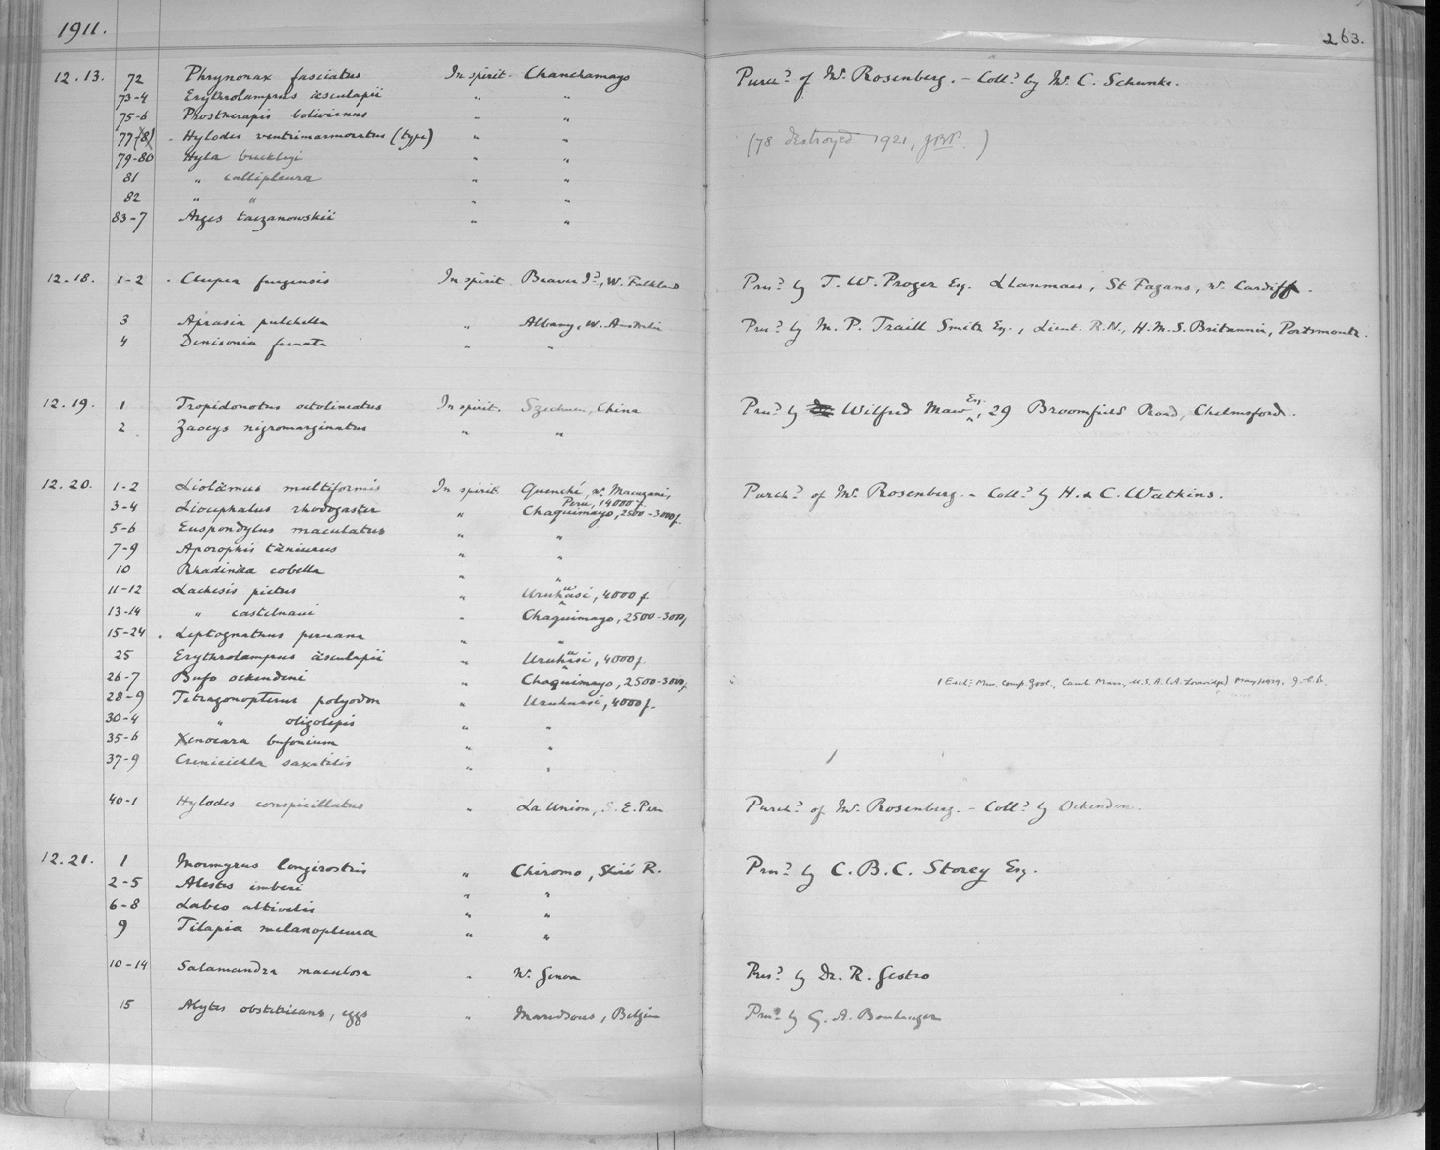 1911.
263.
12.13. 72 Phrynonax fasciatus In spirit. Chanchamayo Purchd. of Mr. Rosenberg. – Colld. by Mr. C. Schunke.
73-4 Erythrolamprus æsculapii " "
75-6 Prostherapis bolivianus " "
77(78) Hylodes ventrimarmoratus (type) " " (78 destroyed 1921, )
79-80 Hyla buckleyi " "
81 " callipleura " "
82 " " " "
83-7 Arges taczanowskii " "
12.18. 1-2 Clupea fuegensis In spirit Beaver Id., W. Falkland Presd. by T. W. Proger Esq. Llanmaes, St Fagans, nr. Cardiff.
3 Aprasia pulchella " Albany, W. Australia Presd. by M. P. Traill Smith Esq., Lieut. R.N., H.M.S. Britannia, Portsmouth.
4 Denisonia " "
12.19. 1 Tropidonotus octolineatus In spirit. Szechuen, China Presd. by Wilfred Maw Esq., 29 Broomfield Road, Chelmsford.
2 Zaocys nigromarginatus " "
12.20. 1-2 Liolæmus multiformis In spirit. nr. Macusani, Peru, 14000 f. Purchd. of Mr. Rosenberg. – Colld. by H. & C. Watkins.
3-4 Liocephalus rhodogaster " Chaquimayo, 2500-3000 f.
5-6 Euspondylus maculatus " "
7-9 Aporophis tæniurus " "
10 Rhadinæa cobella " "
11-12 Lachesis pictus " Uruhuasi, 4000 f.
13-14 " castelnaui " Chaquimayo, 2500-3000 f.
15-24 Leptognathus peruana " "
25 Erythrolamprus æsculapii " Uruhuasi, 4000 f.
26-7 Bufo ockendeni " Chaquimayo, 2500-3000 f. 1 Exch. Mus. Comp. Zool., Camb. Mass., U.S.A. (A. Loveridge) May 1929.
28-9 Tetragonopterus polyodon " Uruhuasi, 4000 f.
30-4 " oligolepis " "
35-6 Xenocara bufonium " "
37-9 Crenicichla saxatilis " "
40-1 Hylodes conspicillatus " La Union, S. E. Peru Purchd. of Mr. Rosenberg. – Colld. by Ockenden.
12.21. 1 Mormyrus longirostris " Chiromo, Shiré R. Presd. by C. B. C. Storey Esq.
2-5 Alestes imberi " "
6-8 Labeo altivelis " "
9 Tilapia melanopleura " "
10-14 Salamandra maculosa " Nr. Genoa Presd. by Dr. R. Gestro
15 Alytes obstetricans, eggs " Maredsous, Belgium Presd. by G. A. Boulenger